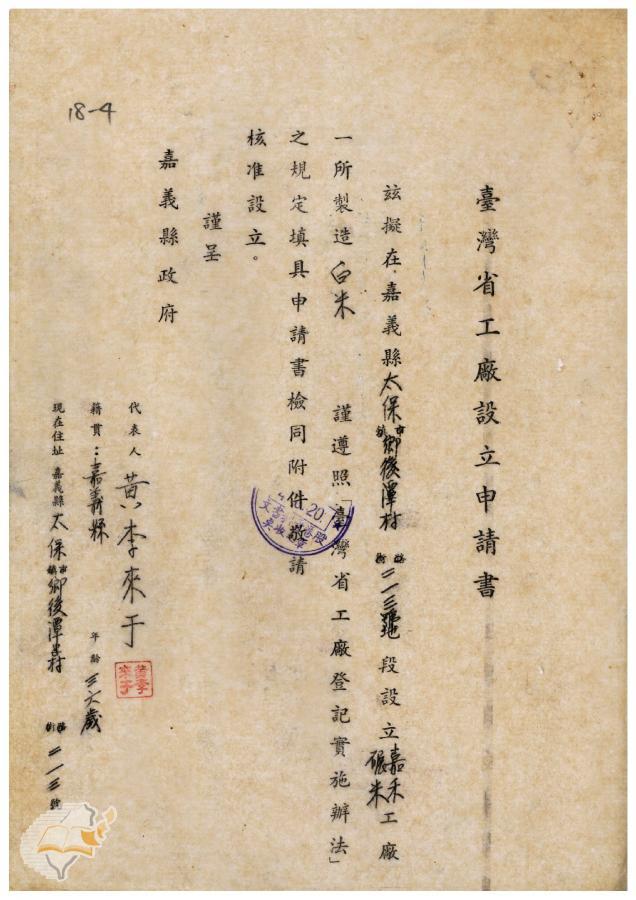 18-4
臺灣省工廠設立申請書
茲擬在嘉義縣太保鄉後潭村二一三號地段設立嘉禾碾米工廠
一所製造白米 謹遵照「臺灣省工廠登記實施辦法」
之規定填具申請書檢同附件敬請
核准設立。
謹呈
嘉義縣政府
代表人 黃李來于
籍貫：嘉義縣 年齡 三六歲
現在住址 嘉義縣太保鄉後潭村 二一三號
20.